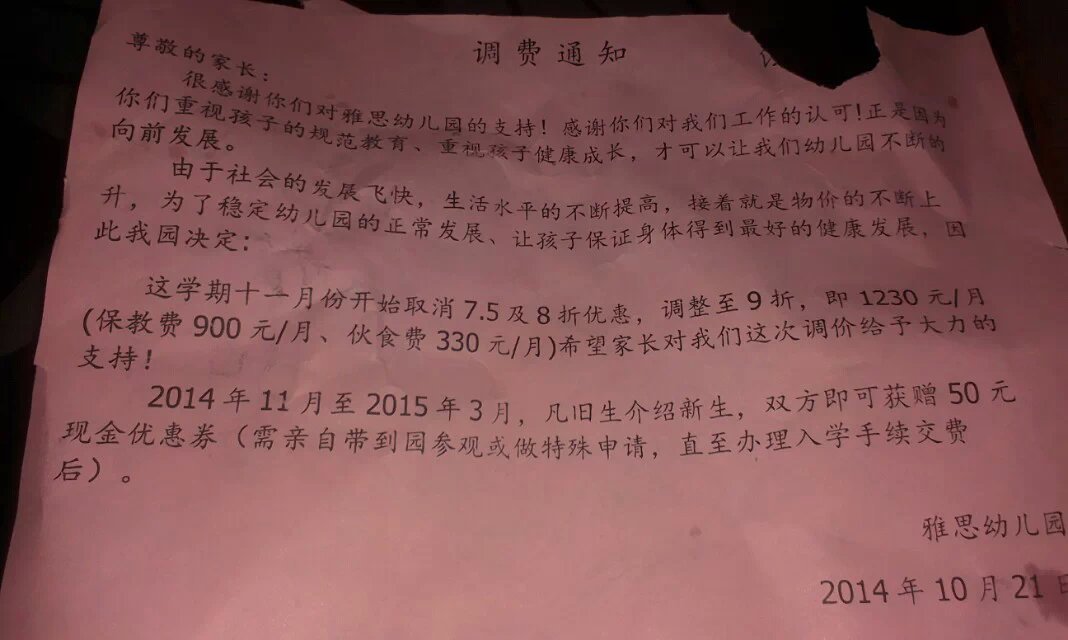 调费通知
尊敬的家长：
很感谢你们对雅思幼儿园的支持！感谢你们对我们工作的认可!正是因为
你们重视孩子的规范教育、重视孩子健康成长，才可以让我们幼儿园不断的
向前发展。
由于社会的发展飞快，生活水平的不断提高，接着就是物价的不断上
升，为了稳定幼儿园的正常发展、让孩子保证身体得到最好的健康发展，因
此我园决定：
这学期十一月份开始取消 7.5 及 8 折优惠，调整至 9 折，即 1230 元/月
(保教费 900 元/月、伙食费 330 元/月)希望家长对我们这次调价给予大力的
支持！
2014 年 11 月至 2015 年 3 月，凡旧生介绍新生，双方即可获赠 50 元
现金优惠券（需亲自带到园参观或做特殊申请，直至办理入学手续交费
后）。
雅思幼儿园
2014 年 10 月 21 日